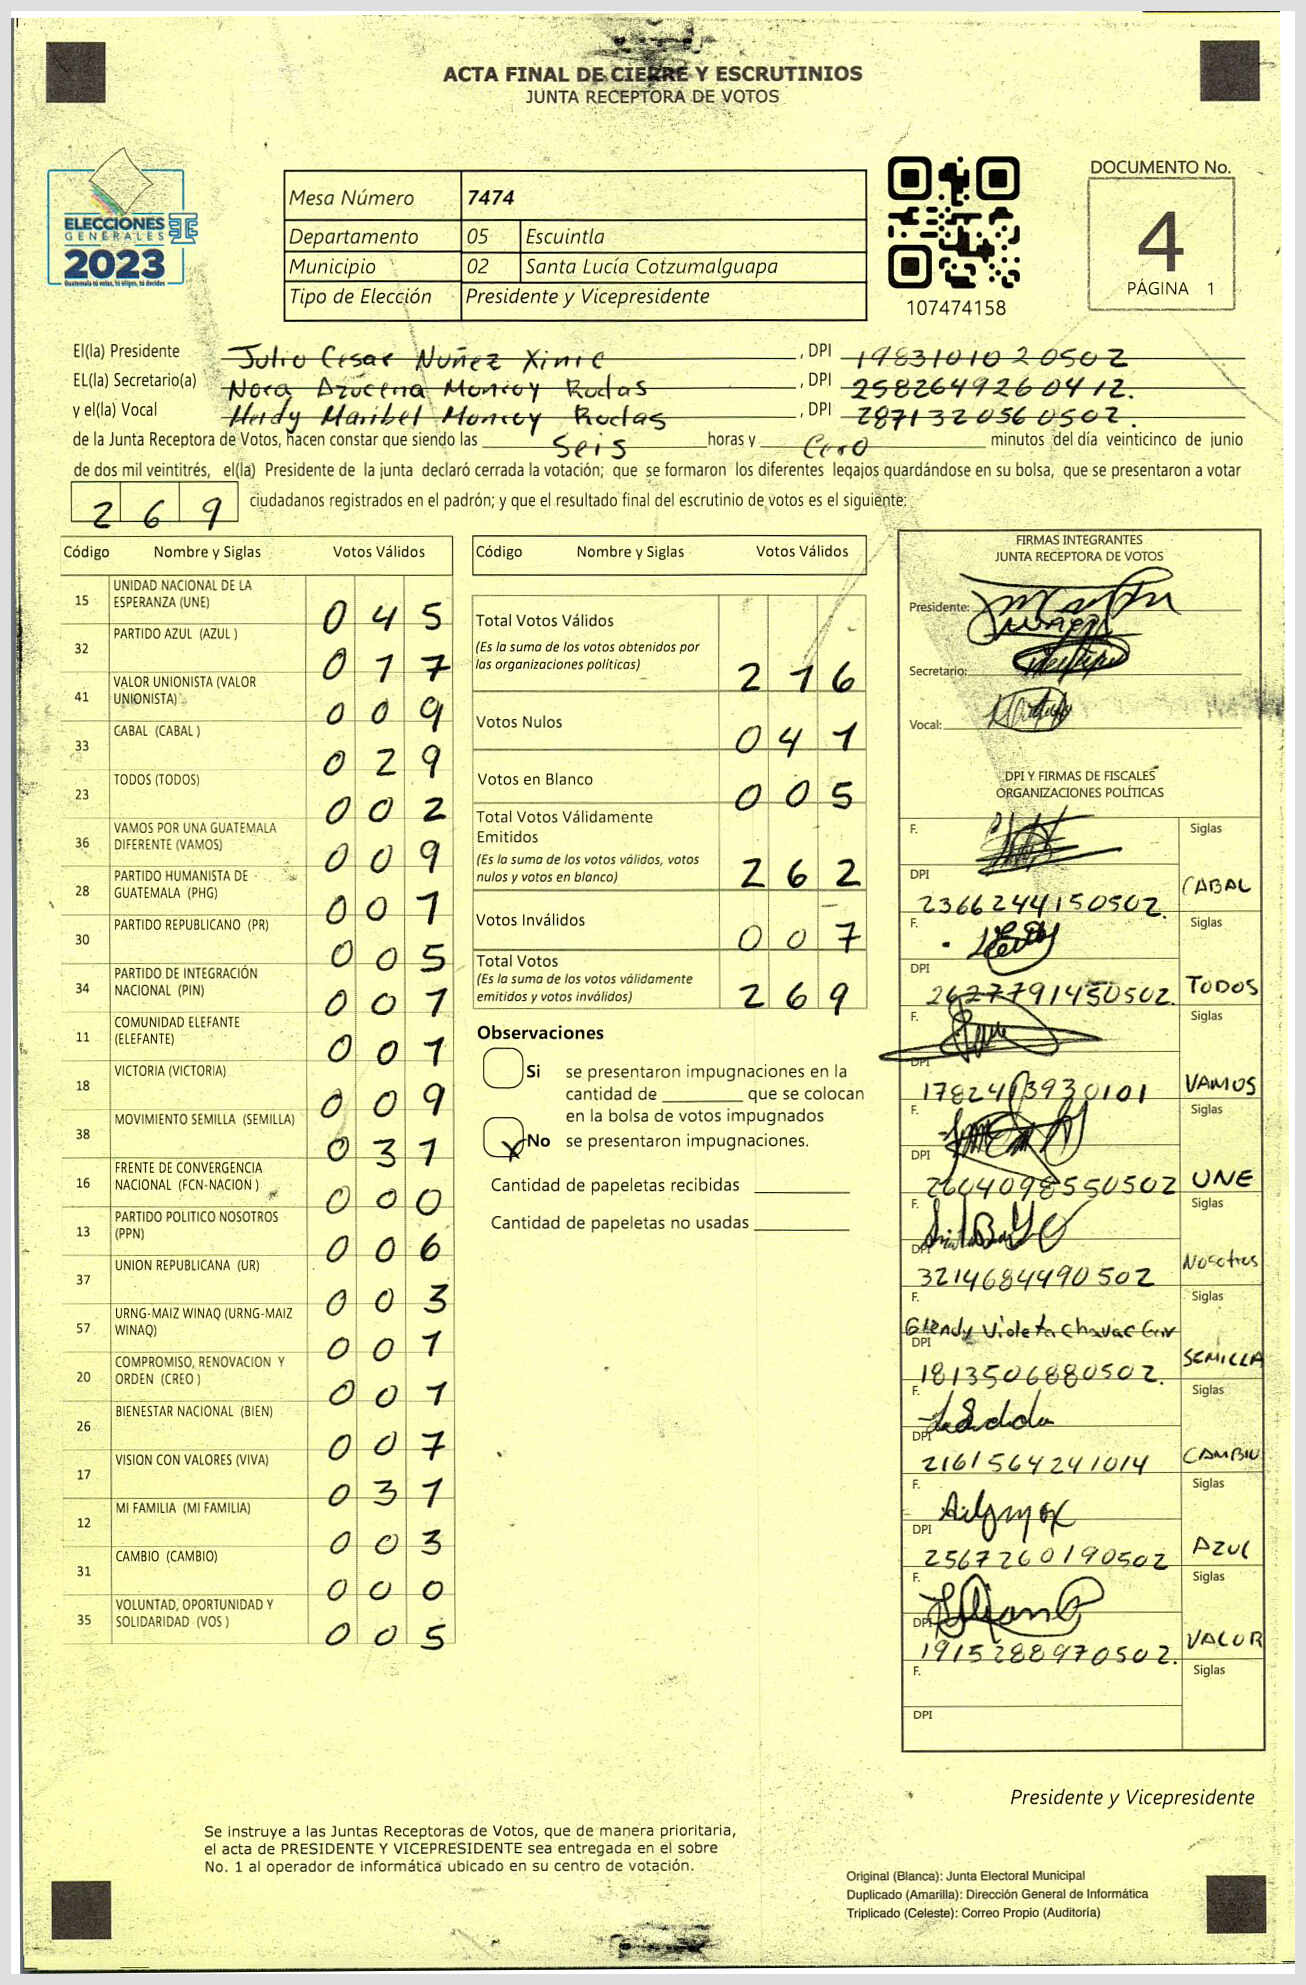 ACTA FINAL DE CIERRE Y ESCRUTINIOS
JUNTA RECEPTORA DE VOTOS
ELECCIONES
GENERALES
2023
Guatemala tú votas, tú eliges, tú decides
Mesa Número 7474
Departamento 05 Escuintla
Municipio 02 Santa Lucía Cotzumalguapa
Tipo de Elección Presidente y Vicepresidente
107474158
DOCUMENTO No.
4
PÁGINA 1
El(la) Presidente Julio Cesar Nuñez Xinic , DPI 1983101020502
EL(la) Secretario(a) Nora Azucena Monroy Rodas , DPI 2582649260412.
y el(la) Vocal Heidy Maribel Monroy Rodas , DPI 2871320560502.
de la Junta Receptora de Votos, hacen constar que siendo las Seis horas y Cero minutos del día veinticinco de junio
de dos mil veintitrés, el(la) Presidente de la junta declaró cerrada la votación; que se formaron los diferentes legajos quardándose en su bolsa, que se presentaron a votar
269 ciudadanos registrados en el padrón; y que el resultado final del escrutinio de votos es el siguiente:
Código Nombre y Siglas Votos Válidos
15 UNIDAD NACIONAL DE LA ESPERANZA (UNE) 045
32 PARTIDO AZUL (AZUL ) 017
41 VALOR UNIONISTA (VALOR UNIONISTA) 009
33 CABAL (CABAL ) 029
23 TODOS (TODOS) 002
36 VAMOS POR UNA GUATEMALA DIFERENTE (VAMOS) 009
28 PARTIDO HUMANISTA DE GUATEMALA (PHG) 001
30 PARTIDO REPUBLICANO (PR) 005
34 PARTIDO DE INTEGRACIÓN NACIONAL (PIN) 001
11 COMUNIDAD ELEFANTE (ELEFANTE) 001
18 VICTORIA (VICTORIA) 009
38 MOVIMIENTO SEMILLA (SEMILLA) 031
16 FRENTE DE CONVERGENCIA NACIONAL (FCN-NACION ) 000
13 PARTIDO POLITICO NOSOTROS (PPN) 006
37 UNION REPUBLICANA (UR) 003
57 URNG-MAIZ WINAQ (URNG-MAIZ WINAQ) 001
20 COMPROMISO, RENOVACION Y ORDEN (CREO ) 001
26 BIENESTAR NACIONAL (BIEN) 007
17 VISION CON VALORES (VIVA) 031
12 MI FAMILIA (MI FAMILIA) 003
31 CAMBIO (CAMBIO) 000
35 VOLUNTAD, OPORTUNIDAD Y SOLIDARIDAD (VOS ) 005
Código Nombre y Siglas Votos Válidos
Total Votos Válidos
(Es la suma de los votos obtenidos por
las organizaciones políticas) 216
Votos Nulos 041
Votos en Blanco 005
Total Votos Válidamente
Emitidos
(Es la suma de los votos válidos, votos
nulos y votos en blanco) 262
Votos Inválidos 007
Total Votos
(Es la suma de los votos válidamente
emitidos y votos inválidos) 269
Observaciones
Si se presentaron impugnaciones en la
cantidad de ________ que se colocan
en la bolsa de votos impugnados
X No se presentaron impugnaciones.
Cantidad de papeletas recibidas
Cantidad de papeletas no usadas
FIRMAS INTEGRANTES
JUNTA RECEPTORA DE VOTOS
Presidente:
Secretario:
Vocal:
DPI Y FIRMAS DE FISCALES
ORGANIZACIONES POLÍTICAS
F. Siglas
DPI 2366244150502. CABAL
F. Siglas
DPI 2627791450502. TODOS
F. Siglas
DPI 1782413930101 VAMOS
F. Siglas
DPI 2604098550502 UNE
F. Siglas
DPI 3214684490502 Nosotros
F. Glendy Violeta Chavac Siglas
DPI 1813506880502. SEMILLA
F. Siglas
DPI 2161564241014 CAMBIO
F. Siglas
DPI 2567260190502 AZUL
F. Siglas
DPI 1915288970502. VALOR
F. Siglas
DPI
Presidente y Vicepresidente
Se instruye a las Juntas Receptoras de Votos, que de manera prioritaria,
el acta de PRESIDENTE Y VICEPRESIDENTE sea entregada en el sobre
No. 1 al operador de informática ubicado en su centro de votación.
Original (Blanca): Junta Electoral Municipal
Duplicado (Amarilla): Dirección General de Informática
Triplicado (Celeste): Correo Propio (Auditoría)